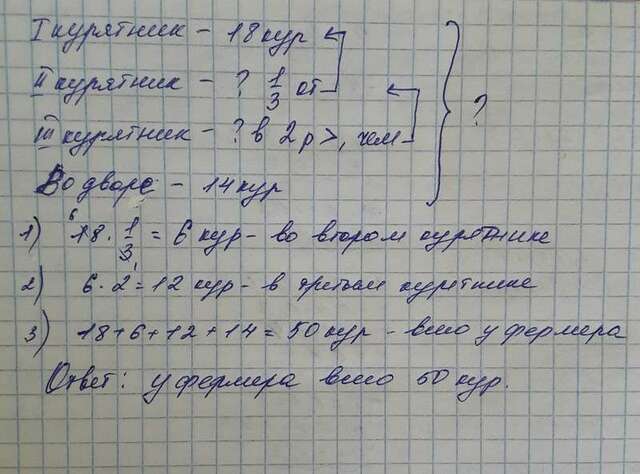 I курятник – 18 кур
II курятник – ? 1/3 от
III курятник – ? в 2 р >, чем
?
Во дворе – 14 кур
1) 18 · 1/3 = 6 кур – во втором курятнике
2) 6 · 2 = 12 кур – в третьем курятнике
3) 18 + 6 + 12 + 14 = 50 кур – всего у фермера
Ответ: у фермера всего 50 кур.